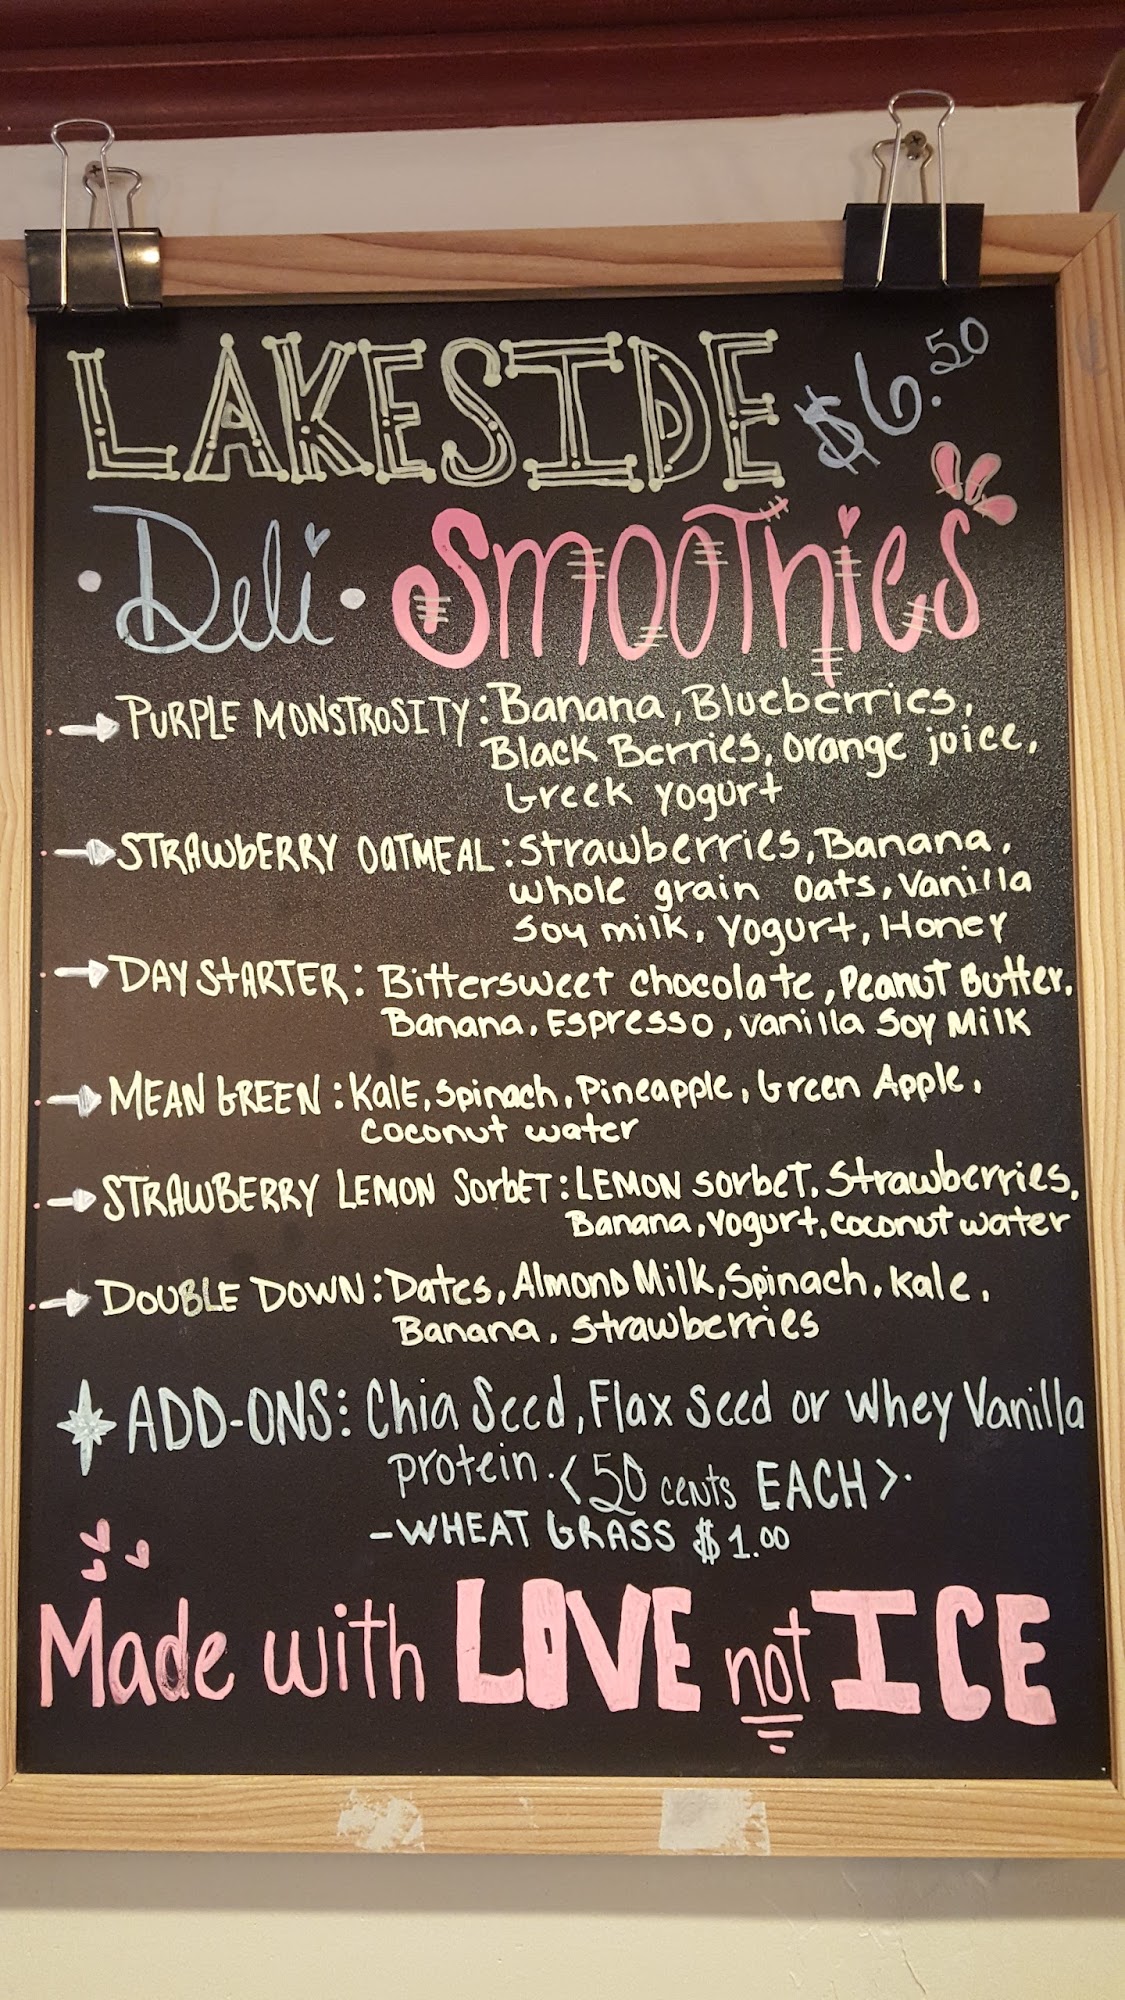 LAKESIDE $6.50
• Deli • Smoothies
PURPLE MONSTROSITY: Banana, Blueberries,
Black Berries, orange juice,
Greek yogurt
STRAWbERRY OATMEAL: Strawberries, Banana,
whole grain oats, Vanilla
Soy milk, Yogurt, Honey
DAY StARTER: Bittersweet chocolate, Peanut Butter,
Banana, Espresso, vanilla Soy Milk
MEAN GREEN: Kale, Spinach, Pineapple, Green Apple,
coconut water
STRAWBERRY LEMON SorbET: LEMON sorbet, Strawberries,
Banana, Yogurt, coconut water
DOUBLE DOWN: Dates, Almond Milk, Spinach, Kale,
Banana, Strawberries
ADD-ONS: Chia Seed, Flax Seed or Whey Vanilla
protein. <50 cents EACH>.
-WHEAT GRASS $1.00
Made with LOVE not ICE